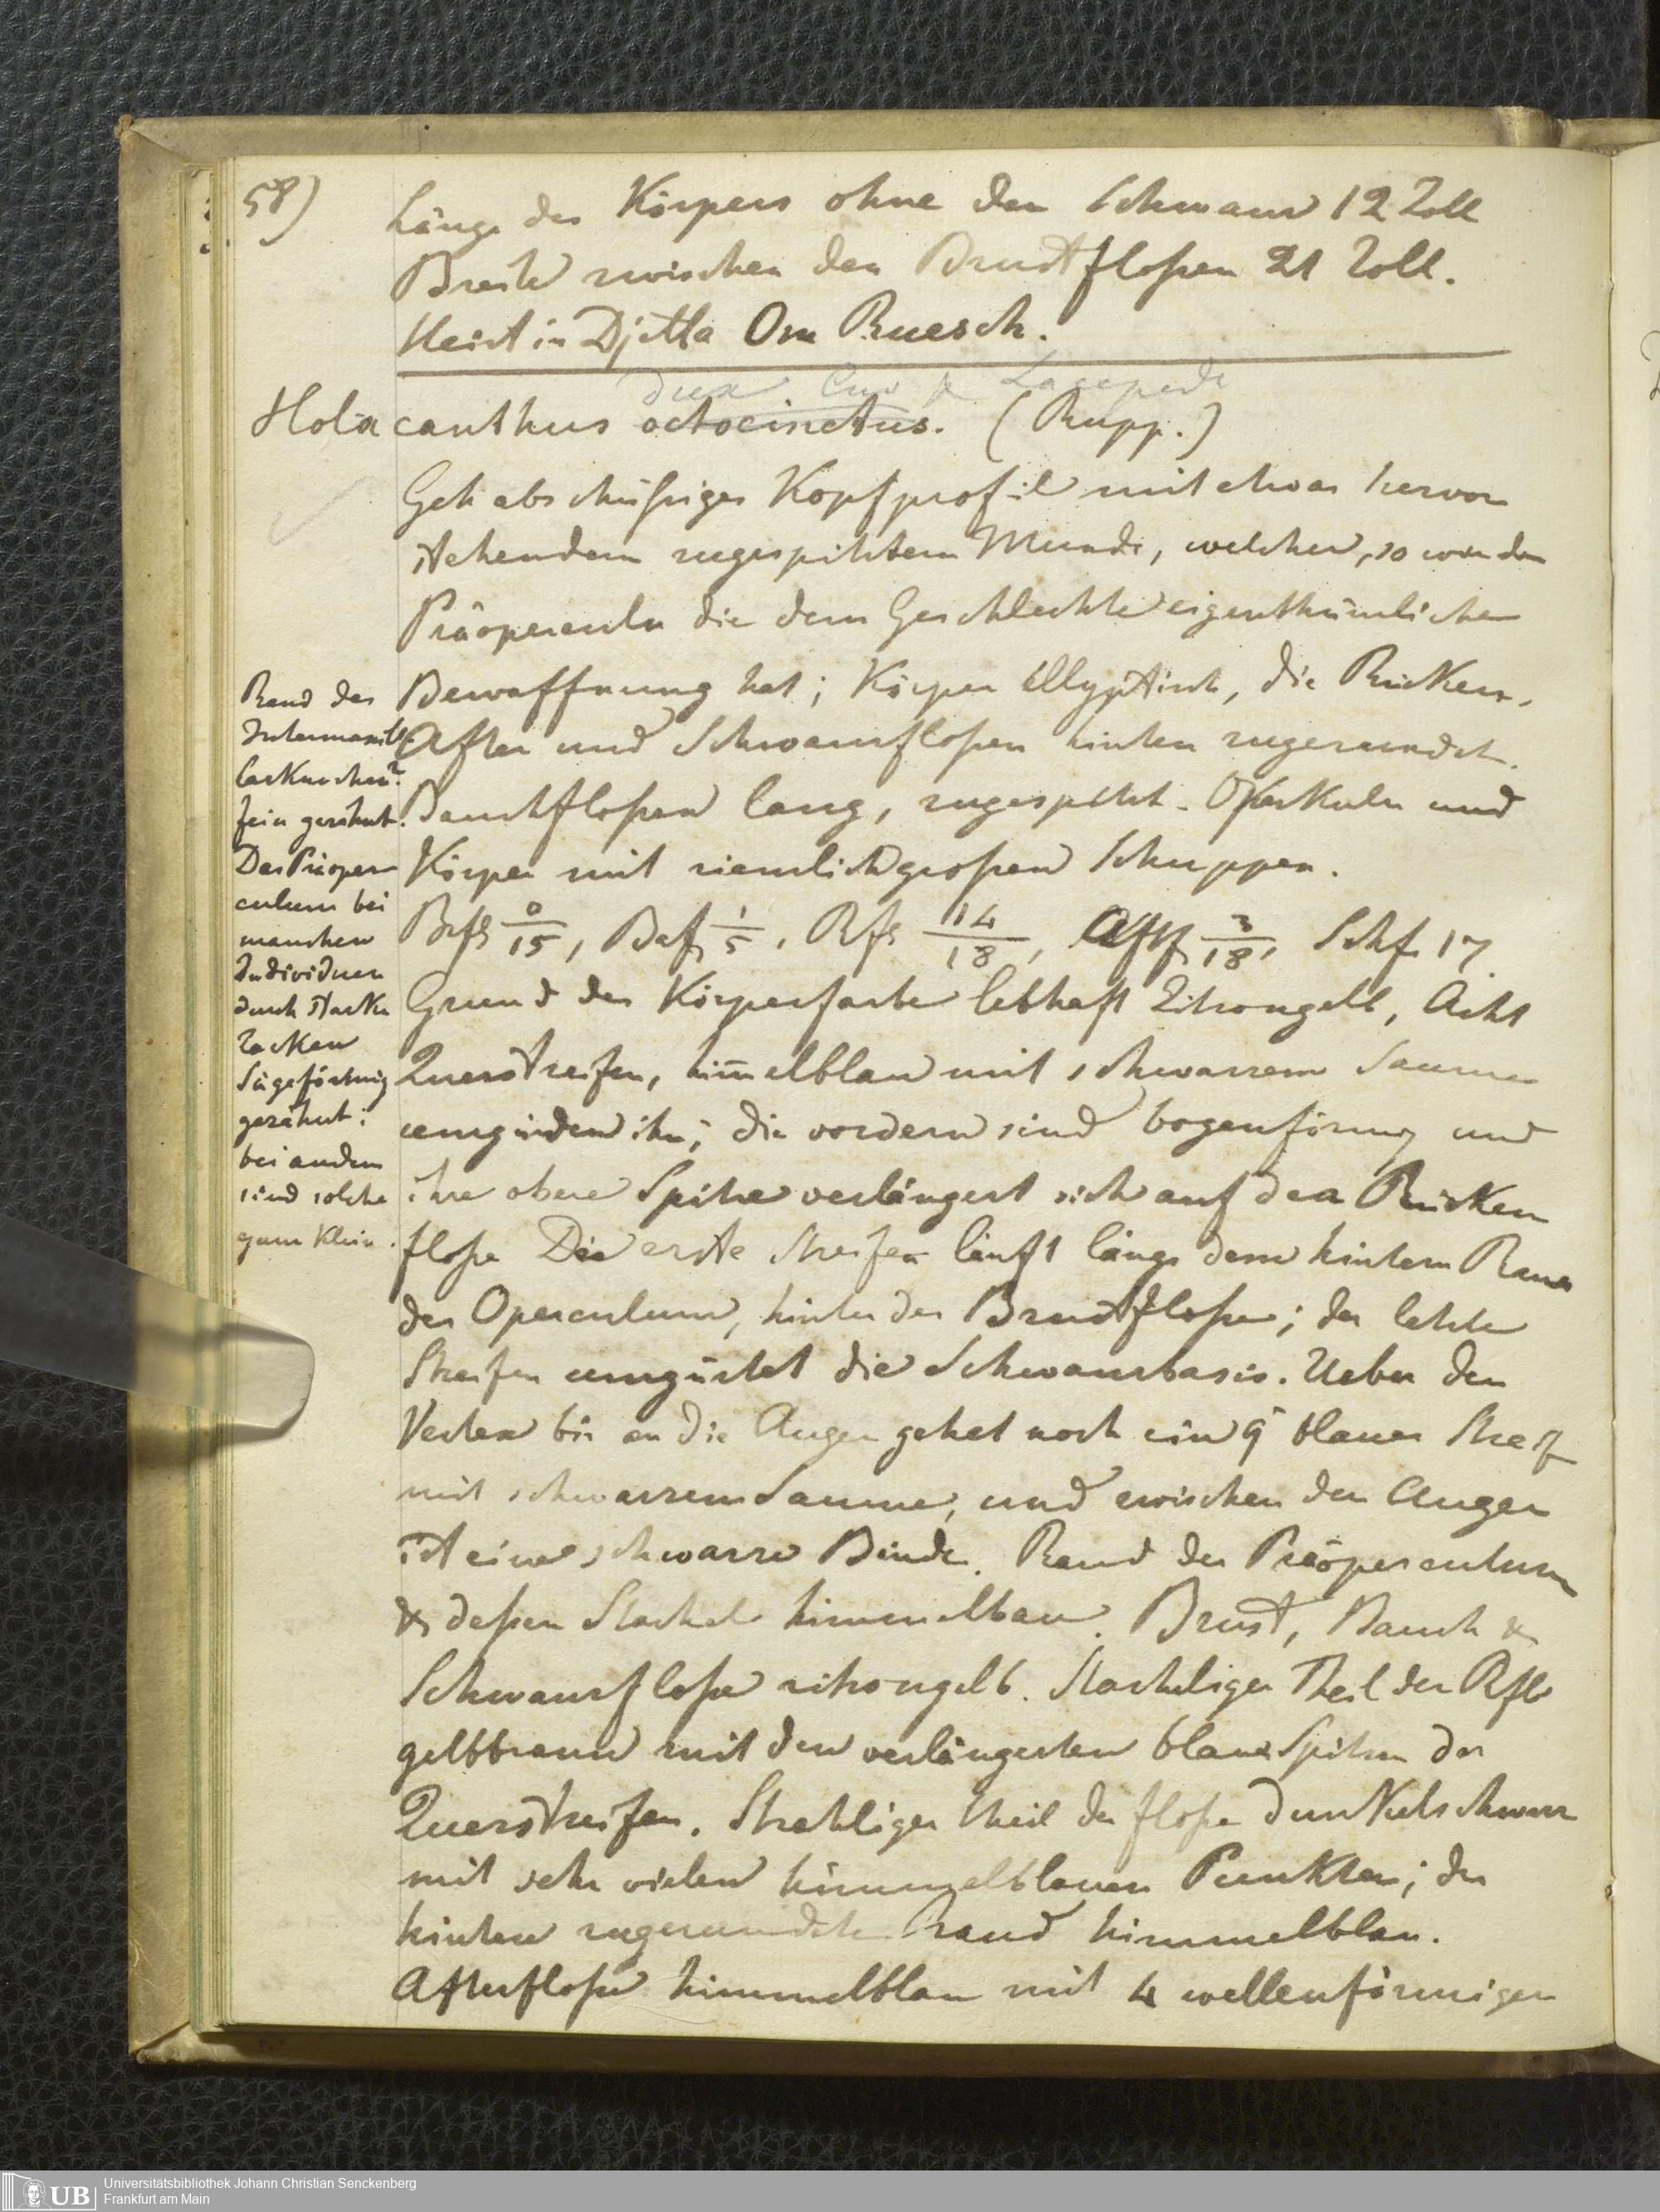 58)
Länge des Körpers ohne den Schwanz 12 Zoll
Breite zwischen den Brustfloßen 21 Zoll.
Heist in Djetta Om Ruesch.
dux Cuv & Lacepede
Holacanthus octocinctus. (Rupp.)
Geh abschüßiges Kopfprofil mit etwas hervor
stehendem zugespitztem Munde, welcher, so wie der
Präoperculn die dem Geschlechte eigenthümliche
Bewaffnung hat; Körper Ellyptisch, die Rücken,
After und Schwanzfloßen hinten zugerundet.
Bauchfloßen lang, zugespitzt. Operkuln und
Körper mit ziemlich großen Schuppen.
Brfs 0/15, Baf 1/5, Rfs 14/18, Aftf 3/18, Schf 17
Grund der Körperfarbe lebhaft Zitrongelb, Acht
Querstreifen, him̄elblau mit schwarzem Saume
umgürden ihn; die vordern sind bogenförmig und
ihre obere Spitze verlängert sich auf den Rücken
floße Die erste Streifen läuft längs dem hintern Rand
des Operculum, hinter der Brustfloße; der letzte
Streifen umgürtet die Schwanzbasis. Ueber den
Vertex bis an die Augen gehet noch ein 9 blauer Streif
mit schwarzem Saume, und zwischen den Augen
ist eine schwarze Binde. Rand des Präoperculum
& deßen Stachel himmelbau. Brust, Bauch &
Schwanzfloße zitrongelb. Stacheliger Theil der Rfl
gelbbraun mit den verlängerten blaue Spitzen der
Querstreifen. Strahliger Theil der floße dunkelschwarz
mit sehr vielen himmelblauen Punkten; der
hintere zugerundete Rand himmelblau.
Afterfloße himmelblau mit 4 wellenförmigen
Rand des
Intermaxil
larknochen?
fein gezähnt.
Das Präoper
culum bei
manchen
Individuen
durch starke
Zacken
Sägeförmig
gezähnt;
bei andern
sind solche
ganz klein.
Universitätsbibliothek Johann Christian Senckenberg
Frankfurt am Main
UB